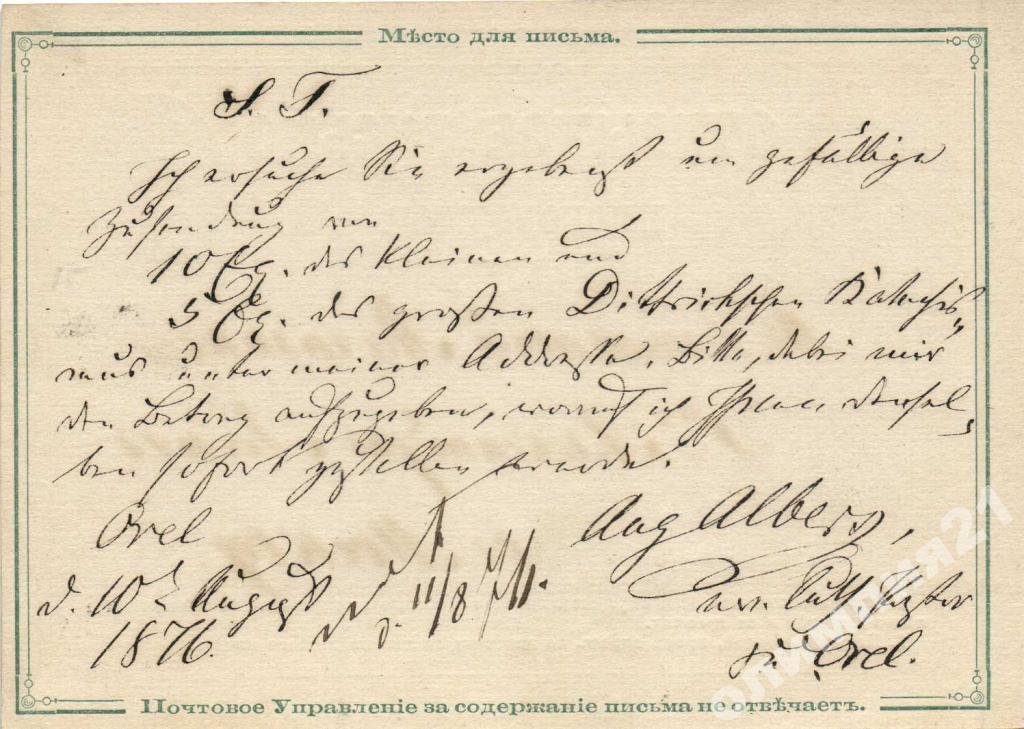 Мѣсто для письма.
S. T.
Ich ersuche Sie ergebenst um gefällige
Zusendung von
10 Ex. des kleinen und
5 Ex. des großen Dittrichschen Katechis-
mus unter meiner Addresse. Bitte, dabei mir
den Betrag aufzugeben, worauf ich Ihnen densel-
ben sofort zustellen werde.
Orel
d. 10t August
1876.
d. 11/8 76.
Aug Albers,
ev. luth. Pastor
zu Orel.
Почтовое Управленіе за содержаніе письма не отвѣчаетъ.
олимпия21